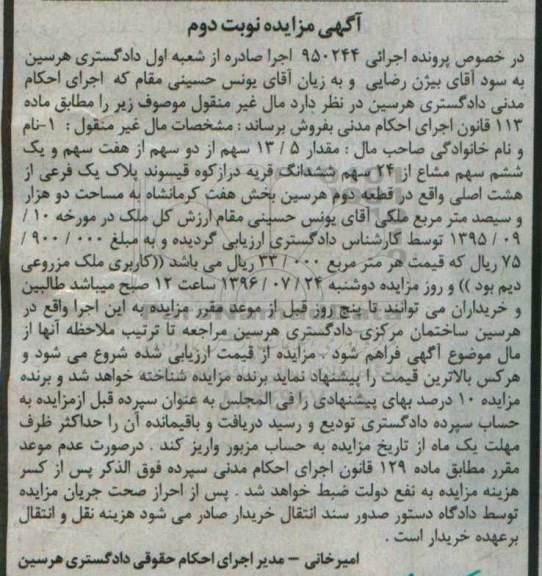 آگهی مزایده نوبت دوم
در خصوص پرونده اجرائی ۹۵۰۲۴۴ اجرا صادره از شعبه اول دادگستری هرسین
به سود آقای بیژن رضایی و به زیان آقای یونس حسینی مقام که اجرای احکام
مدنی دادگستری هرسین در نظر دارد مال غیر منقول موصوف زیر را مطابق ماده
۱۱۳ قانون اجرای احکام مدنی بفروش برساند : مشخصات مال غیر منقول : ۱-نام
و نام خانوادگی صاحب مال : مقدار ۵ / ۱۳ سهم از دو سهم از هفت سهم و یک
ششم سهم مشاع از ۲۴ سهم ششدانگ قریه درازکوه قیسوند پلاک یک فرعی از
هشت اصلی واقع در قطعه دوم هرسین بخش هفت کرمانشاه به مساحت دو هزار
و سیصد متر مربع ملکی آقای یونس حسینی مقام ارزش کل ملک در مورخه ۱۰ /
۰۹ / ۱۳۹۵ توسط کارشناس دادگستری ارزیابی گردیده و به مبلغ ۰۰۰ / ۹۰۰ /
۷۵ ریال که قیمت هر متر مربع ۰۰۰ / ۳۳ ریال می باشد ((کاربری ملک مزروعی
دیم بود )) و روز مزایده دوشنبه ۲۴ / ۰۷ / ۱۳۹۶ ساعت ۱۲ صبح میباشد طالبین
و خریداران می توانند تا پنج روز قبل از موعد مقرر مزایده به این اجرا واقع در
هرسین ساختمان مرکزی دادگستری هرسین مراجعه تا ترتیب ملاحظه آنها از
مال موضوع آگهی فراهم شود . مزایده از قیمت ارزیابی شده شروع می شود و
هرکس بالاترین قیمت را پیشنهاد نماید برنده مزایده شناخته خواهد شد و برنده
مزایده ۱۰ درصد بهای پیشنهادی را فی المجلس به عنوان سپرده قبل ازمزایده به
حساب سپرده دادگستری تودیع و رسید دریافت و باقیمانده آن را حداکثر ظرف
مهلت یک ماه از تاریخ مزایده به حساب مزبور واریز کند . درصورت عدم موعد
مقرر مطابق ماده ۱۲۹ قانون اجرای احکام مدنی سپرده فوق الذکر پس از کسر
هزینه مزایده به نفع دولت ضبط خواهد شد . پس از احراز صحت جریان مزایده
توسط دادگاه دستور صدور سند انتقال خریدار صادر می شود هزینه نقل و انتقال
برعهده خریدار است .
امیرخانی – مدیر اجرای احکام حقوقی دادگستری هرسین